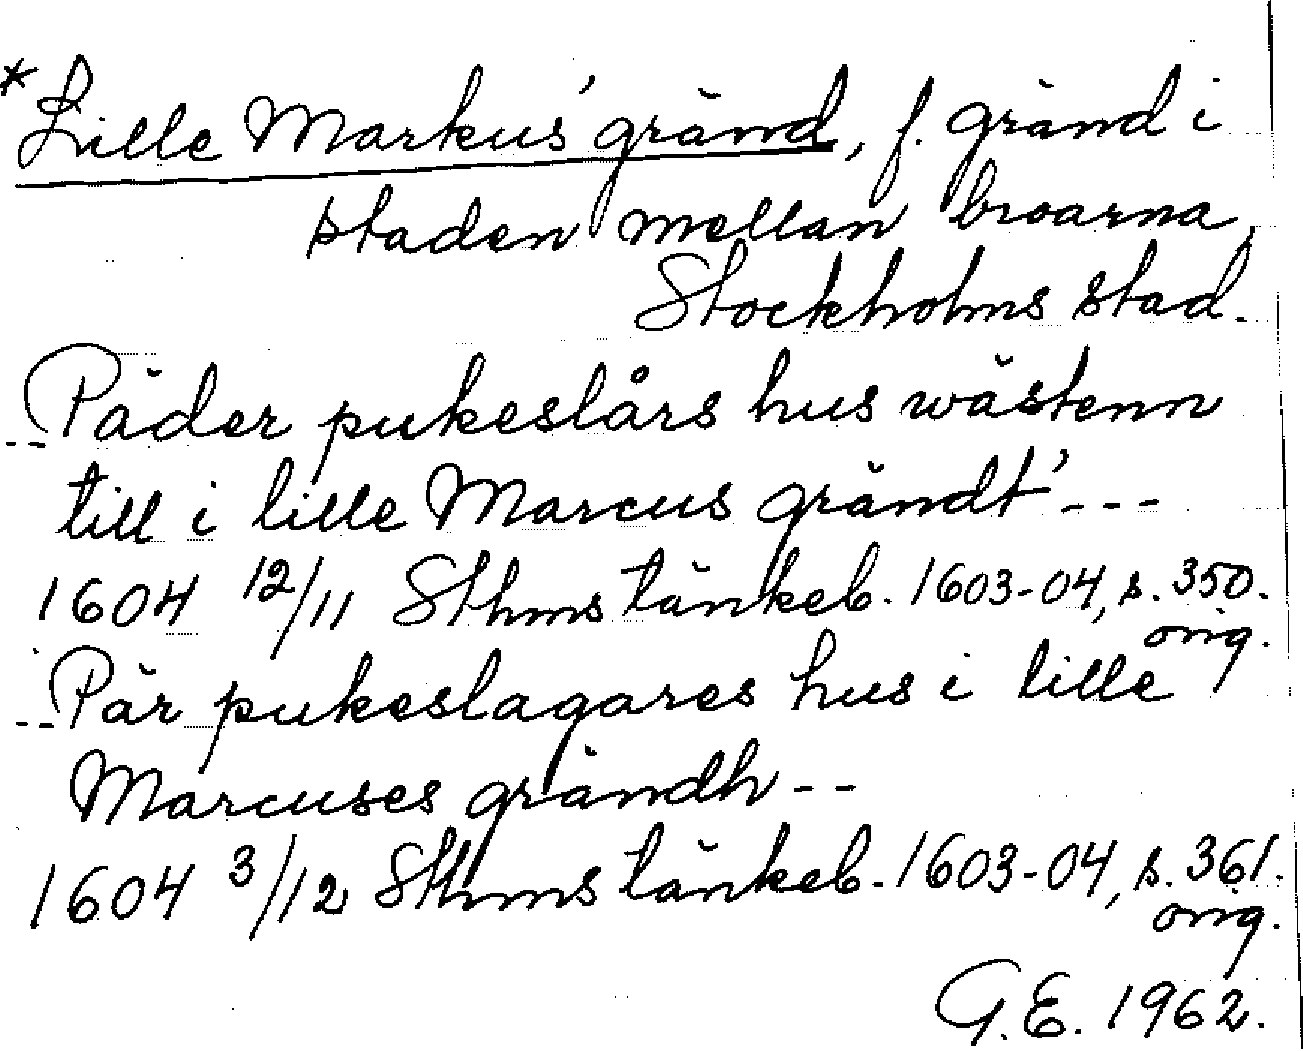 *Lille Markus' gränd, f. gränd i
staden mellan broarna,
Stockholms stad.
--Päder pukeslårs hus wästenn
till i lille Marcus grändt' ---
1604 12/11 Sthms tänkeb. 1603-04, s. 350.
orig.
--Pär pukeslagares hus i lille
Marcuses grändh --
1604 3/12 Sthms tänkeb. 1603-04, s. 361.
orig.
G.E. 1962.